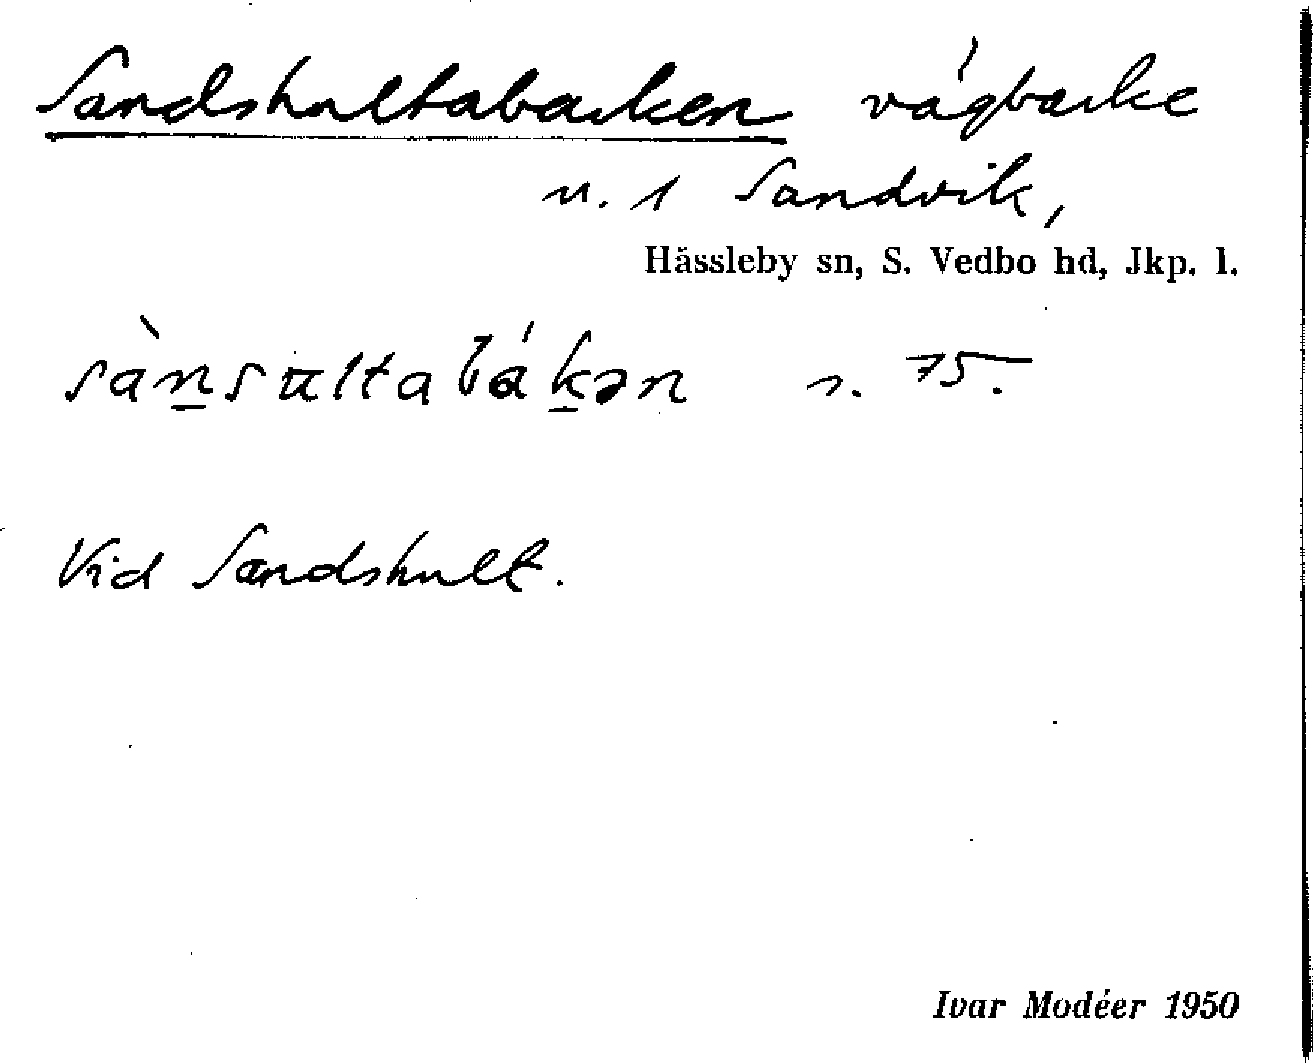 Sandshultabacken vägbacke
u. 1 Sandvik,
Hässleby sn, S. Vedbo hd, Jkp. l.
sàn̲sultabák̲ən s. 75.
Vid Sandshult.
Ivar Modéer 1950